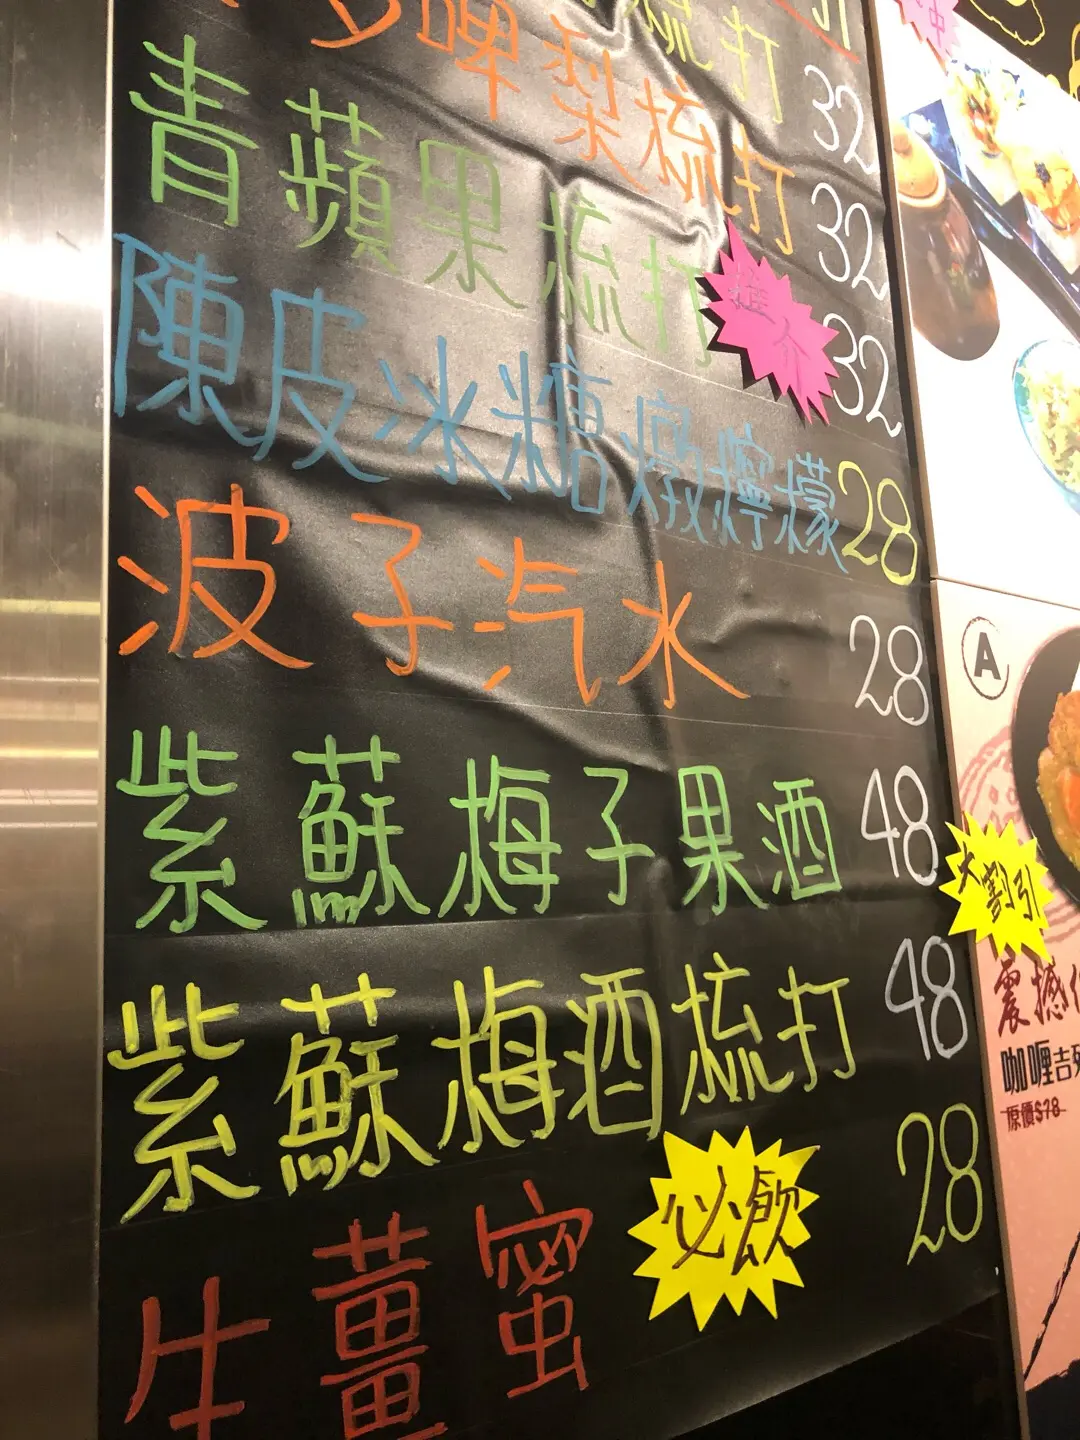 梳打
啤梨梳打 32
青蘋果梳打 32
推介 32
陳皮冰糖燉檸檬 28
波子汽水 28
紫蘇梅子果酒 48
紫蘇梅酒梳打 48
生薑蜜 28
必飲
A
大割引
震撼
咖喱吉列
原價$78